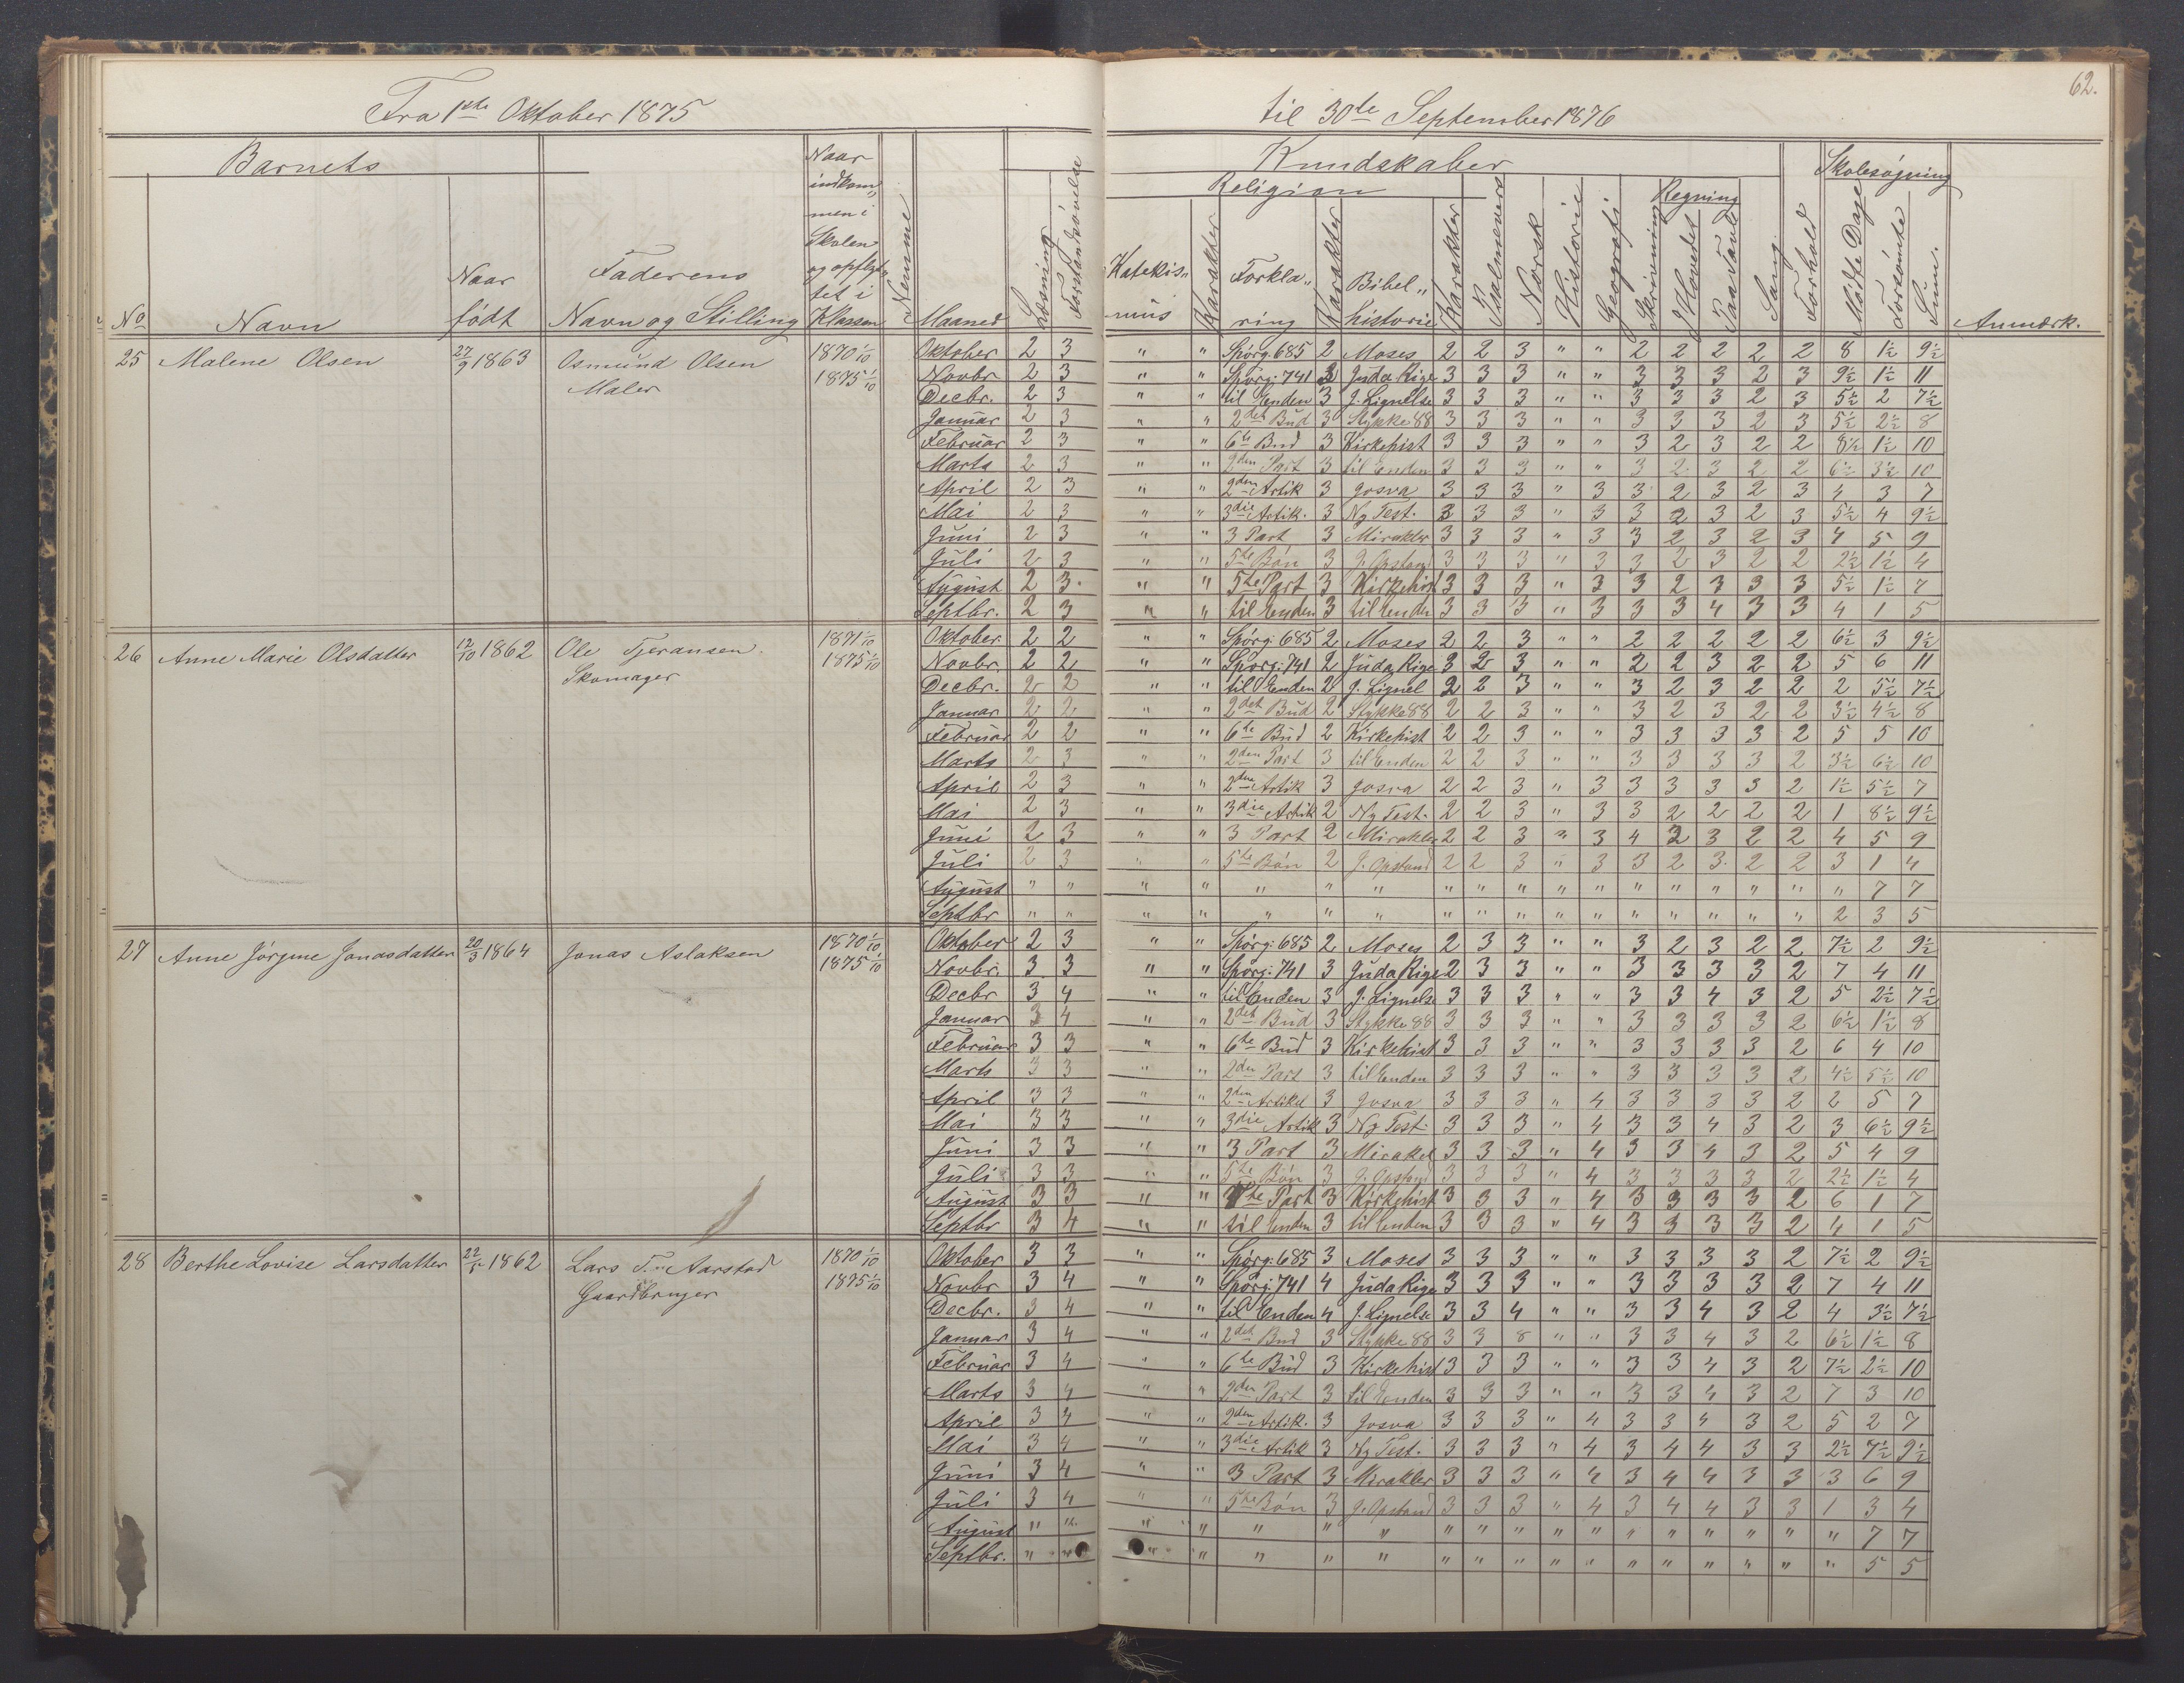 62.
Fra 1ste Oktober 1875 til 30te September 1876
Barnets Kundskaber Skolesøgning
Religion Regning
No Navn Naar født Faderens Navn og Stilling Naar indkommen i Skolen og opflyttet i Klassen Nemme Maaned Læsning Forstandsøvelse Katekis„mus Karakter Forkla„ring Karakter Bibel„historie Karakter Psalmevers Norsk Historie Geografi Skrivning I Hovedet Paa Tavle Sang Forhold Mødte Dage Forsømte Sum. Anmærk.
25 Malene Olsen 27/9 1863 Osmund Olsen Maler 1870 1/10 1875 1/10
Oktober 2 3 " " Spørg. 685 2 Moses 2 2 3 " " 2 2 2 2 2 8 1½ 9½
Novbr 2 3 " " Spørg. 741 3 Juda Rige 3 3 3 " " 3 3 3 2 3 9½ 1½ 11
Decbr. 2 3 " " til Enden 3 J. Lignelse 3 3 3 " " 3 3 3 2 3 5½ 2 7½
Januar 2 3 " " 2det Bud 3 Stykke 88 3 3 3 " " 3 3 3 2 3 5½ 2½ 8
Februar 2 3 " " 6te Bud 3 Kirkehist 3 3 3 " " 3 2 3 2 2 8½ 1½ 10
Marts 2 3 " " 2den Part 3 til Enden 3 3 3 " " 3 2 3 2 2 6½ 3½ 10
April 2 3 " " 2den Artik 3 Josva 3 3 3 " 3 3 2 3 2 3 4 3 7
Mai 2 3 " " 3die Artik. 3 Ny Test. 3 3 3 " 3 3 2 3 2 3 5½ 4 9½
Juni 2 3 " " 3 Part 3 Mirakler 3 3 3 " 3 3 2 3 2 3 4 5 9
Juli 2 3 " " 5te Bøn 3 J. Opstand 3 3 3 " 3 3 2 3 2 2 2½ 1½ 4
August 2 3 " " 5te Part 3 Kirkehist 3 3 3 " 3 3 2 3 3 3 5½ 1½ 7
Septbr. 2 3 " " til Enden 3 til Enden 3 3 3 " 3 3 3 4 3 3 4 1 5
26 Anne Marie Olsdatter 12/10 1862 Ole Tjeransen. Skomager 1871 1/10 1875 1/10
Oktober 2 2 " " Spørg. 685 2 Moses 2 2 3 " " 2 2 2 2 2 6½ 3 9½
Novbr 2 2 " " Spørg. 741 2 Juda Rige 3 2 3 " " 2 2 3 2 2 5 6 11
Decbr. 2 2 " " til Enden 2 J. Lignel 2 2 3 " " 3 2 3 2 2 2 5½ 7½
Januar 2 2 " " 2det Bud 2 Stykke 88 2 2 3 " " 3 2 3 2 2 3½ 4½ 8
Februar 2 2 " " 6te Bud 2 Kirkehist 2 2 3 " " 3 3 3 3 2 5 5 10
Marts 2 3 " " 2den Part 3 til Enden 2 2 3 " " 3 3 3 3 2 3½ 6½ 10
April 2 3 " " 2den Artik 3 Josva 2 2 3 " 3 3 3 3 3 2 1½ 5½ 7
Mai 2 3 " " 3die Artik 2 Ny Test. 2 2 3 " 3 3 2 2 2 2 1 8½ 9½
Juni 2 3 " " 3 Part 2 Mirakler 2 2 3 " 3 4 2 3 2 2 4 5 9
Juli 2 3 " " 5te Bøn 2 J. Opstand 2 2 3 " 3 3 2 3 2 2 3 1 4
August " " " " " " " " " " " " " " " " " " " 7 7
Septbr " " " " " " " " " " " " " " " " " " 2 3 5
27 Anne Jørgine Jonasdatter 20/3 1864 Jonas Aslaksen 1870 1/10 1875 1/10
Oktober 2 3 " " Spørg. 685 2 Moses 2 3 3 " " 3 2 3 2 2 7½ 2 9½
Novbr. 3 3 " " Spørg. 741 3 Juda Rige 2 3 3 " " 3 3 3 3 2 7 4 11
Decbr 3 4 " " til Enden 3 J. Lignelse 3 3 3 " " 3 3 4 3 2 5 2½ 7½
Januar 3 4 " " 2det Bud 3 Stykke 88 3 3 3 " " 3 3 3 3 2 6½ 1½ 8
Februar 3 3 " " 6te Bud 3 Kirkehist 3 3 3 " " 3 3 3 3 2 6 4 10
Marts 3 3 " " 2den Part 3 til Enden 3 3 3 " " 3 3 3 3 2 4½ 5½ 10
April 3 3 " " 2den Artikel 3 Josva 3 3 3 " 4 3 3 3 3 2 2 5 7
Mai 3 3 " " 3die Artik 3 Ny Test. 3 3 3 " 4 3 3 4 3 2 3 6½ 9½
Juni 3 3 " " 3 Part 3 Mirakel 3 3 3 " 4 3 3 4 3 2 5 4 9
Juli 3 3 " " 5te Bøn 3 J. Opstand 3 3 3 " 4 3 3 3 3 2 2½ 1½ 4
August 3 3 " " 5te Part 3 Kirkehist 3 3 3 " 4 3 3 3 3 2 6 1 7
Septbr 3 4 " " til Enden 3 til Enden 3 3 3 " 4 3 3 3 3 2 4 1 5
28 Berthe Lovise Larsdatter 22/5 1862 Lars T. Aarstad Gaardbruger 1870 1/10 1875 1/10
Oktober 3 3 " " Spørg. 685 3 Moses 3 3 3 " " 3 3 3 3 2 7½ 2 9½
Novbr 3 4 " " Spørg. 741 4 Juda Rige 3 3 3 " " 3 3 3 3 2 7 4 11
Decbr. 3 4 " " til Enden 4 J. Lignelse 3 3 4 " " 3 3 4 3 2 4 3½ 7½
Januar 3 4 " " 2det Bud 3 Stykke 88 3 3 3 " " 3 3 4 3 2 6½ 1½ 8
Februar 3 4 " " 6te Bud 3 Kirkehist 3 3 3 " " 3 3 4 3 2 7½ 2½ 10
Marts 3 4 " " 2den Part 3 til Enden 3 3 3 " " 3 3 4 3 2 7 3 10
April 3 4 " " 2den Artik. 3 Josva 3 3 3 " 4 3 3 4 3 2 5 2 7
Mai 3 4 " " 3die Artik 3 Ny Test. 3 3 3 " 4 3 4 4 3 3 2½ 7½ 9½
Juni 3 4 " " 3 Part 3 Mirakler 3 3 3 " 4 3 4 4 3 3 3 6 9
Juli 3 4 " " 5te Bøn 3 J. Opstand 3 3 3 " 4 3 4 4 3 3 1 3 4
August " " " " " " " " " " " " " " " " " " " 7 7
Septbr. " " " " " " " " " " " " " " " " " " " 5 5